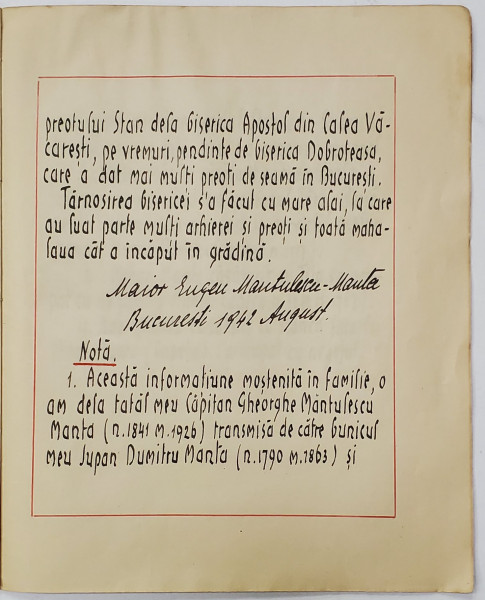 preotului Stan dela biserica Apostol din Calea Vă-
carești, pe vremuri, pendinte de biserica Dobroteasa,
care a dat mai mulți preoți de seamă în București.
Târnosirea bisericei s'a făcut cu mare alai, la care
au luat parte mulți arhierei și preoți și toată maha-
laua cât a încăput în grădină.
Maior Eugen Mantulescu-Manta
București 1942 August.
Notă.
1. Această informațiune moștenită în familie, o
am dela tatăl meu Căpitan Gheorghe Măntulescu
Manta (n.1841 m.1926) transmisă de către bunicul
meu Jupan Dumitru Manta (n.1790 m.1863) și